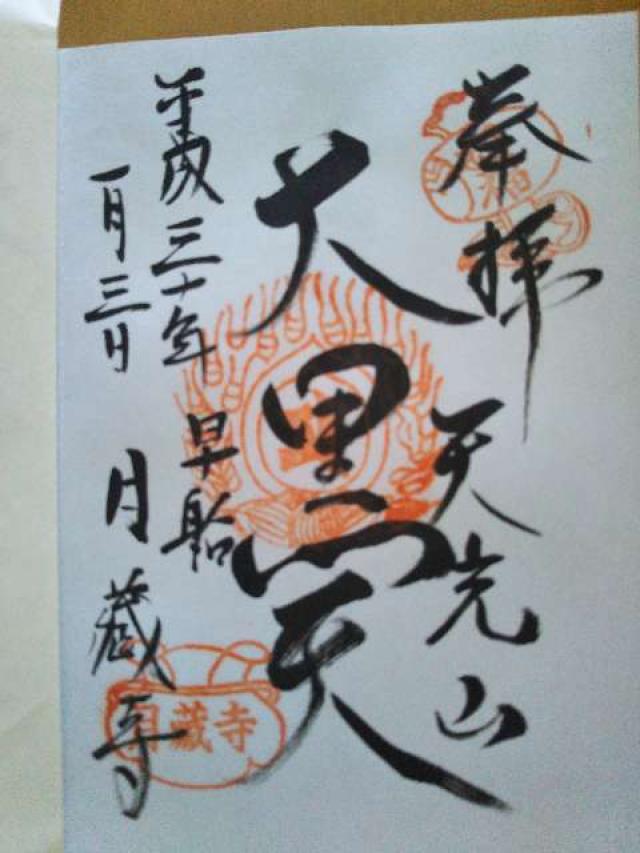 奉拝
天光山
大黒天
平成三十年
一月三日
早船
月蔵寺
月蔵寺